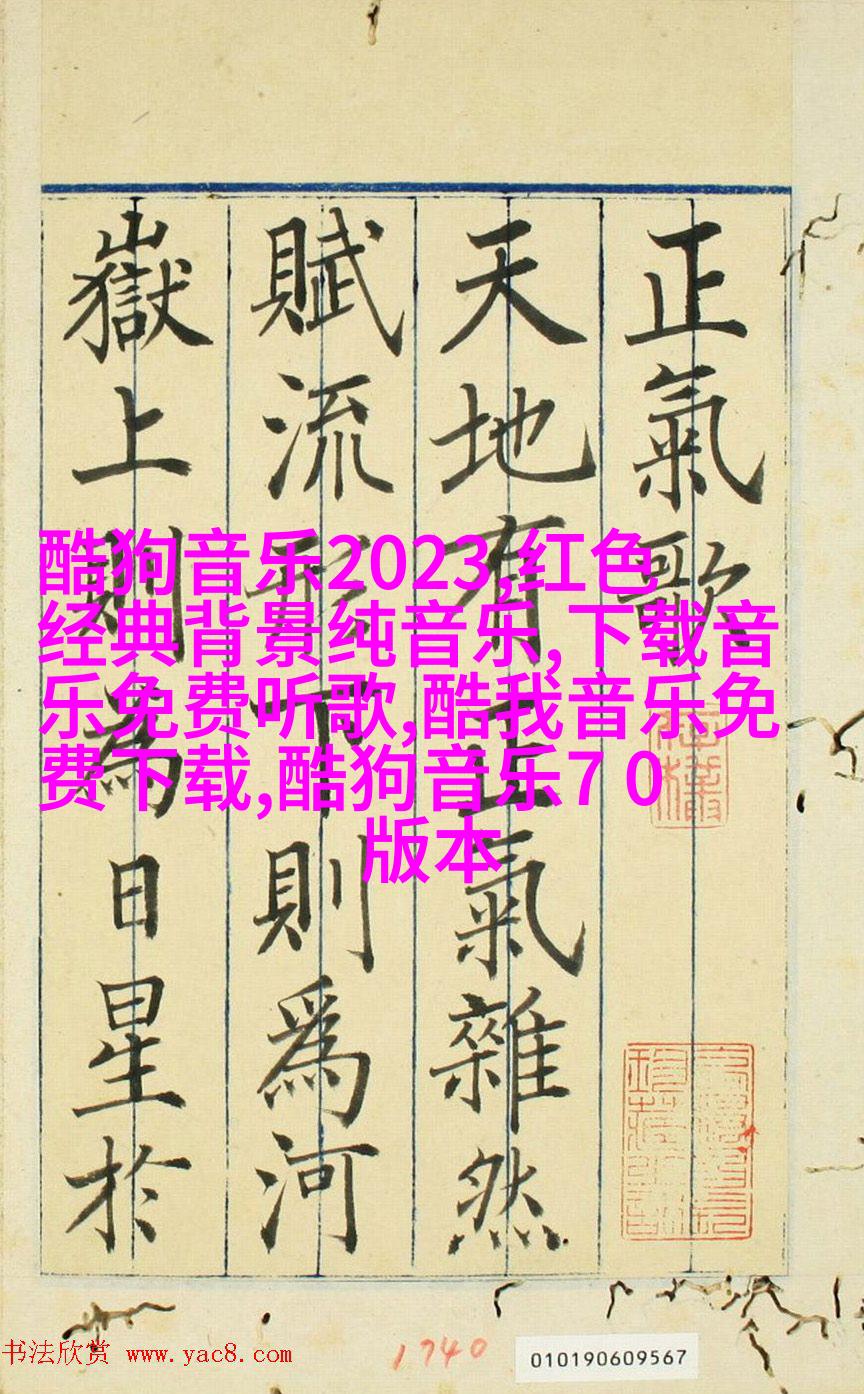 正氣歌
天地有正氣雜然
賦流形下則爲河
嶽上則為日星於
酷狗音乐2023,红色
经典背景纯音乐,下载音
乐免费听歌,酷我音乐免
费下载,酷狗音乐7 0
版本
书法欣赏 www.yac8.com
1740
010190609567